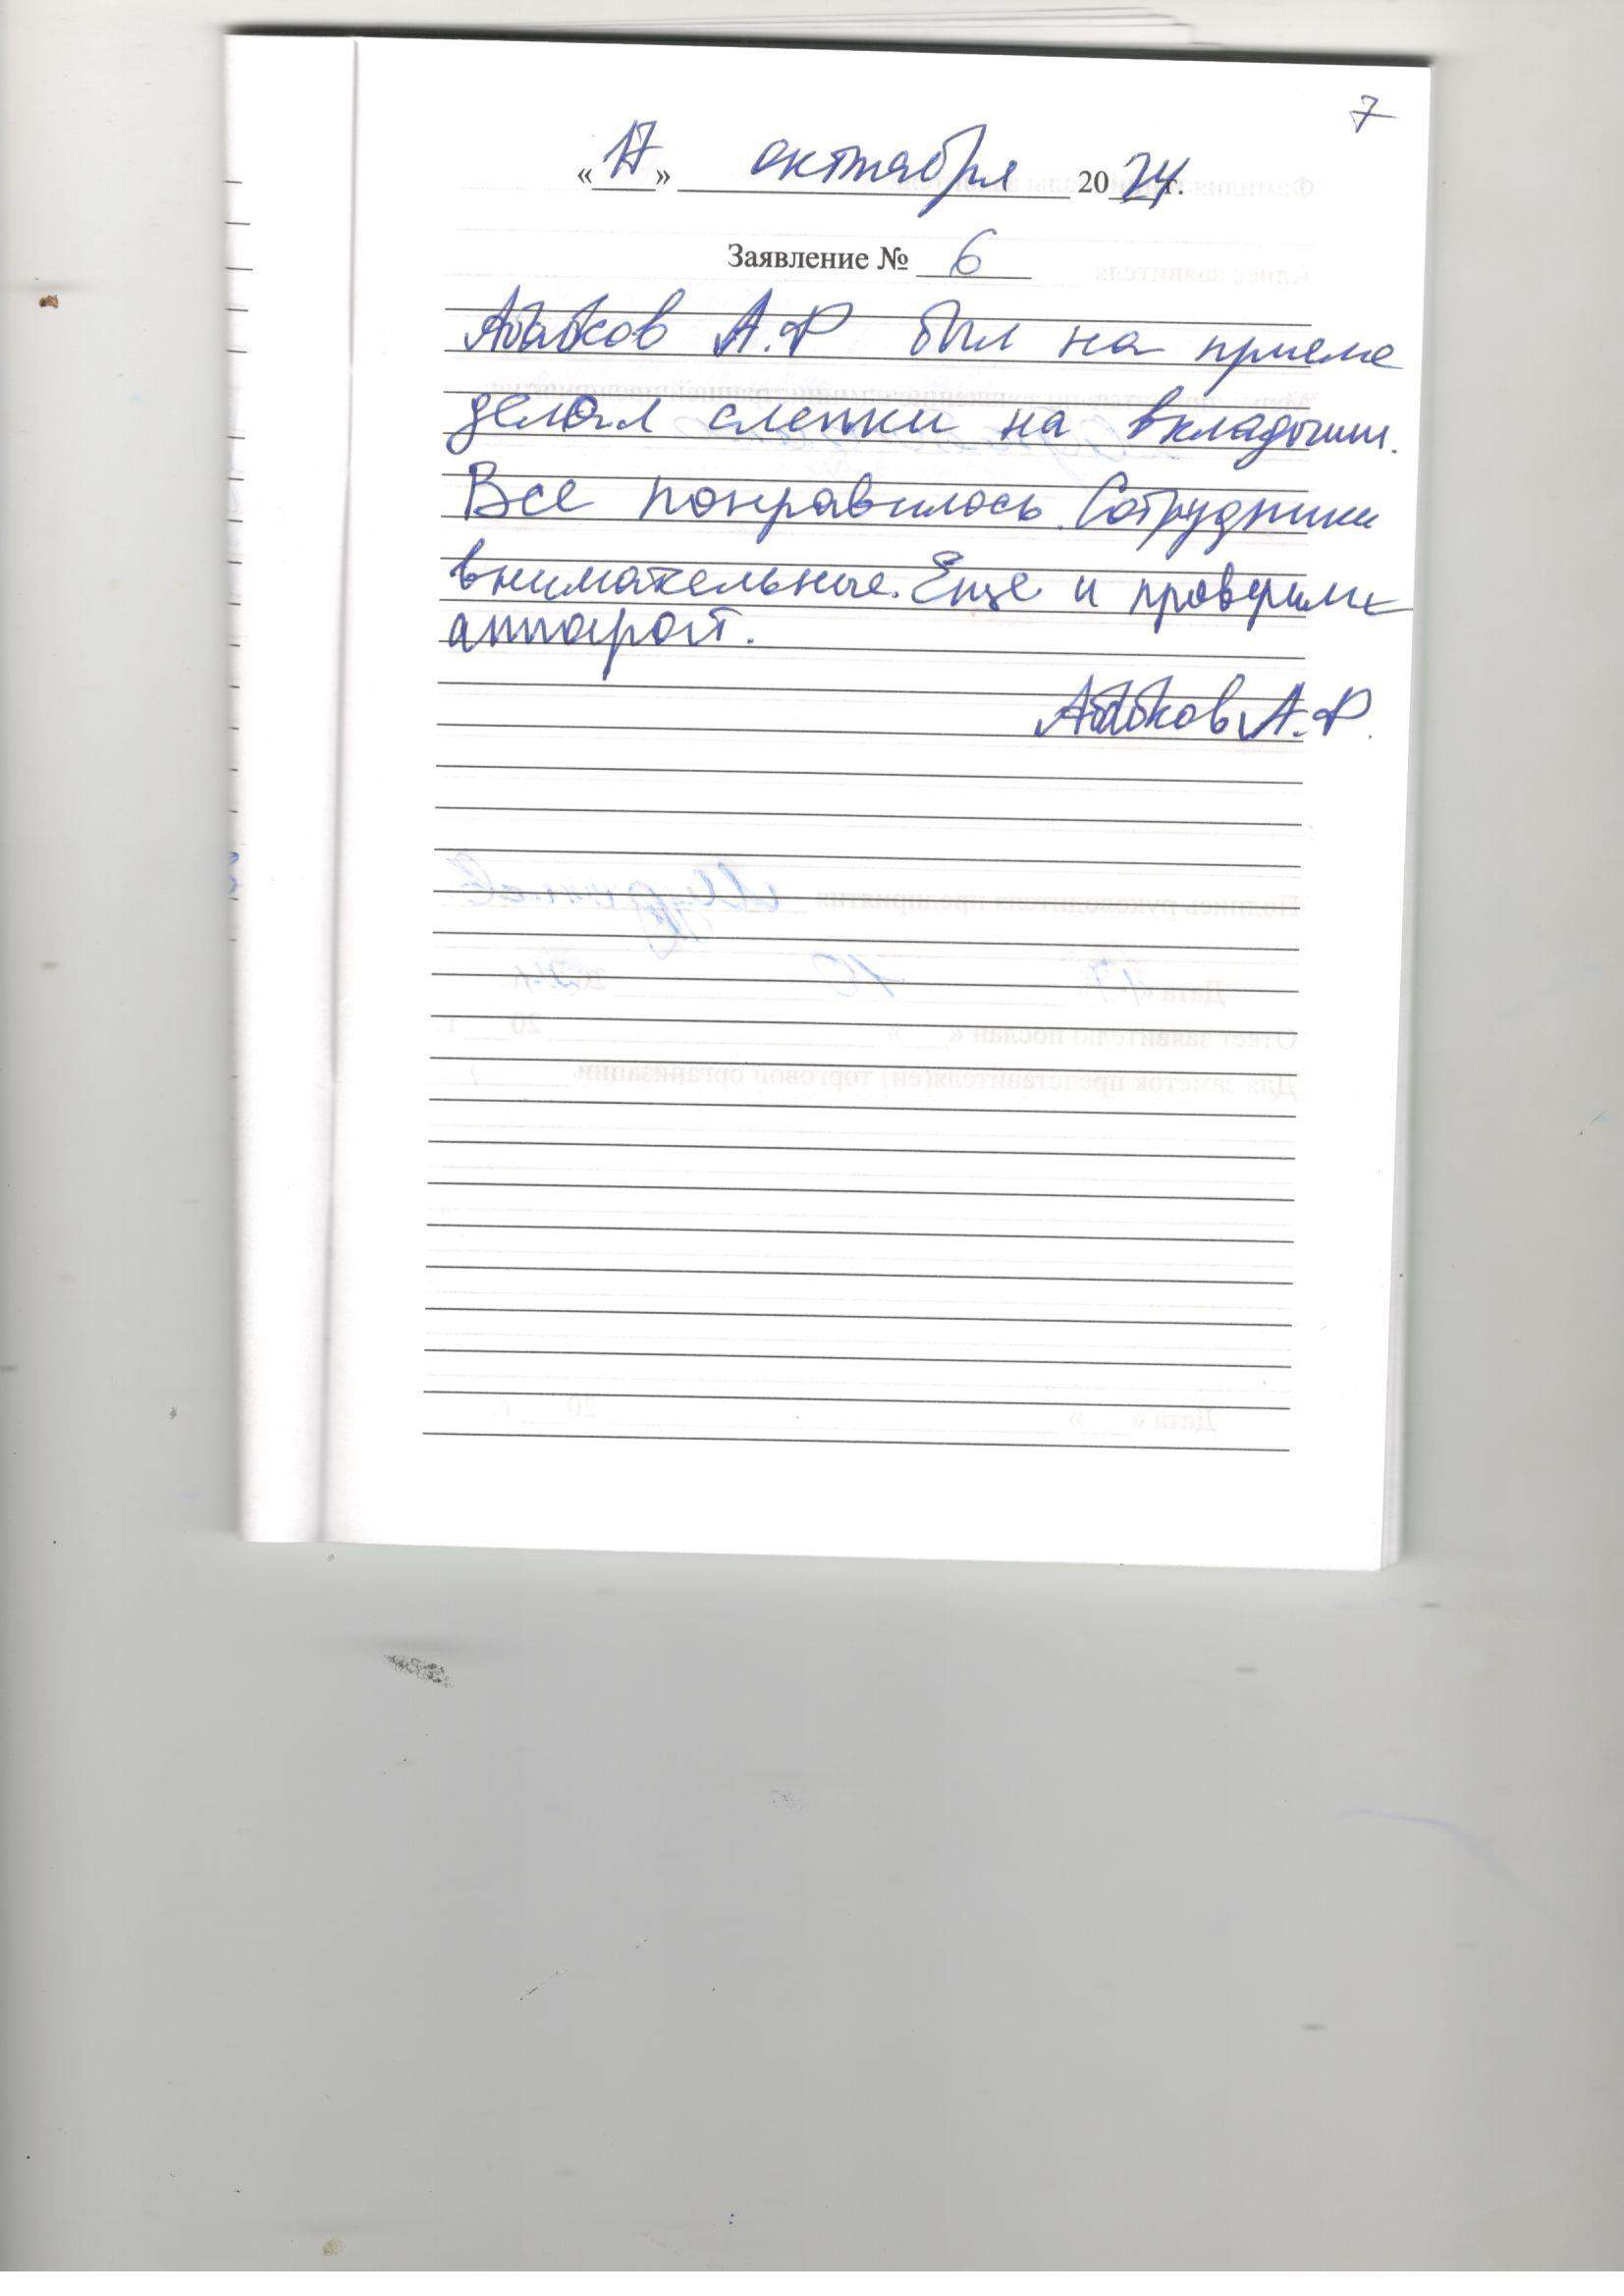 7
«17» октября 2024 г.
Заявление № 6
Абабков А.Р был на приеме
делал слепки на вкладыши.
Все понравилось. Сотрудники
внимательные. Еще и проверили
аппарат.
Абабков А.Р.